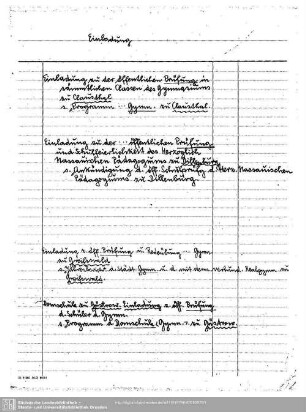 Einladung
Einladung zu der öffentlichen Prüfung in
sämmtlichen Classen des Gymnasiums
zu Clausthal.
s. Programm ... Gymn. zu Clausthal.
Einladung zu der ... öffentlichen Prüfung
und Schulfeierlichkeit des Herzoglich
Nassauischen Pädagogiums zu Dillenburg
s. Ankündigung d. öff. Schulprüfg d. Herz. Nassauischen
Pädagogiums zu Dillenburg
Einladung z. öff. Prüfung u. ... Gymn.
zu Greifswald
s. d. städt. Gymn. u. d. mit dems. verbund. Realgymn. zu
Greifswald.
Domschule zu Güstrow. Einladung z. öff. Prüfung
d. Schüler d. Gymn.
s. Programm d. Domschule (Gymn.) zu Güstrow.
Sächsische Landesbibliothek -
Staats- und Universitätsbibliothek Dresden